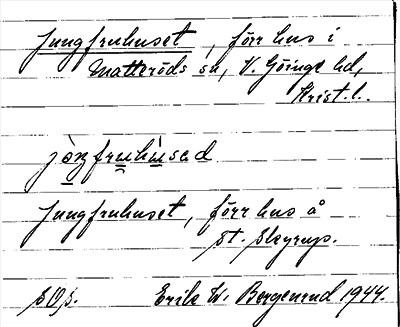 Jungfruhuset, förr hus i
Matteröds sn, V. Göinge hd,
Krist. l.
Jungfruhuset, förr hus å
St. Skyrup.
Erik W. Bergenrud 1944.